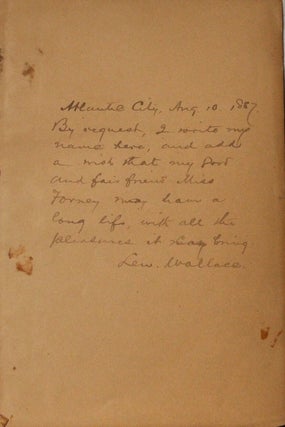 Atlantic City, Aug 10. 1887.
By request, I write my
name here, and add
a wish that my
and fair friend Miss
Forney may have a
long life, with all the
pleasures it may bring.
Lew. Wallace.